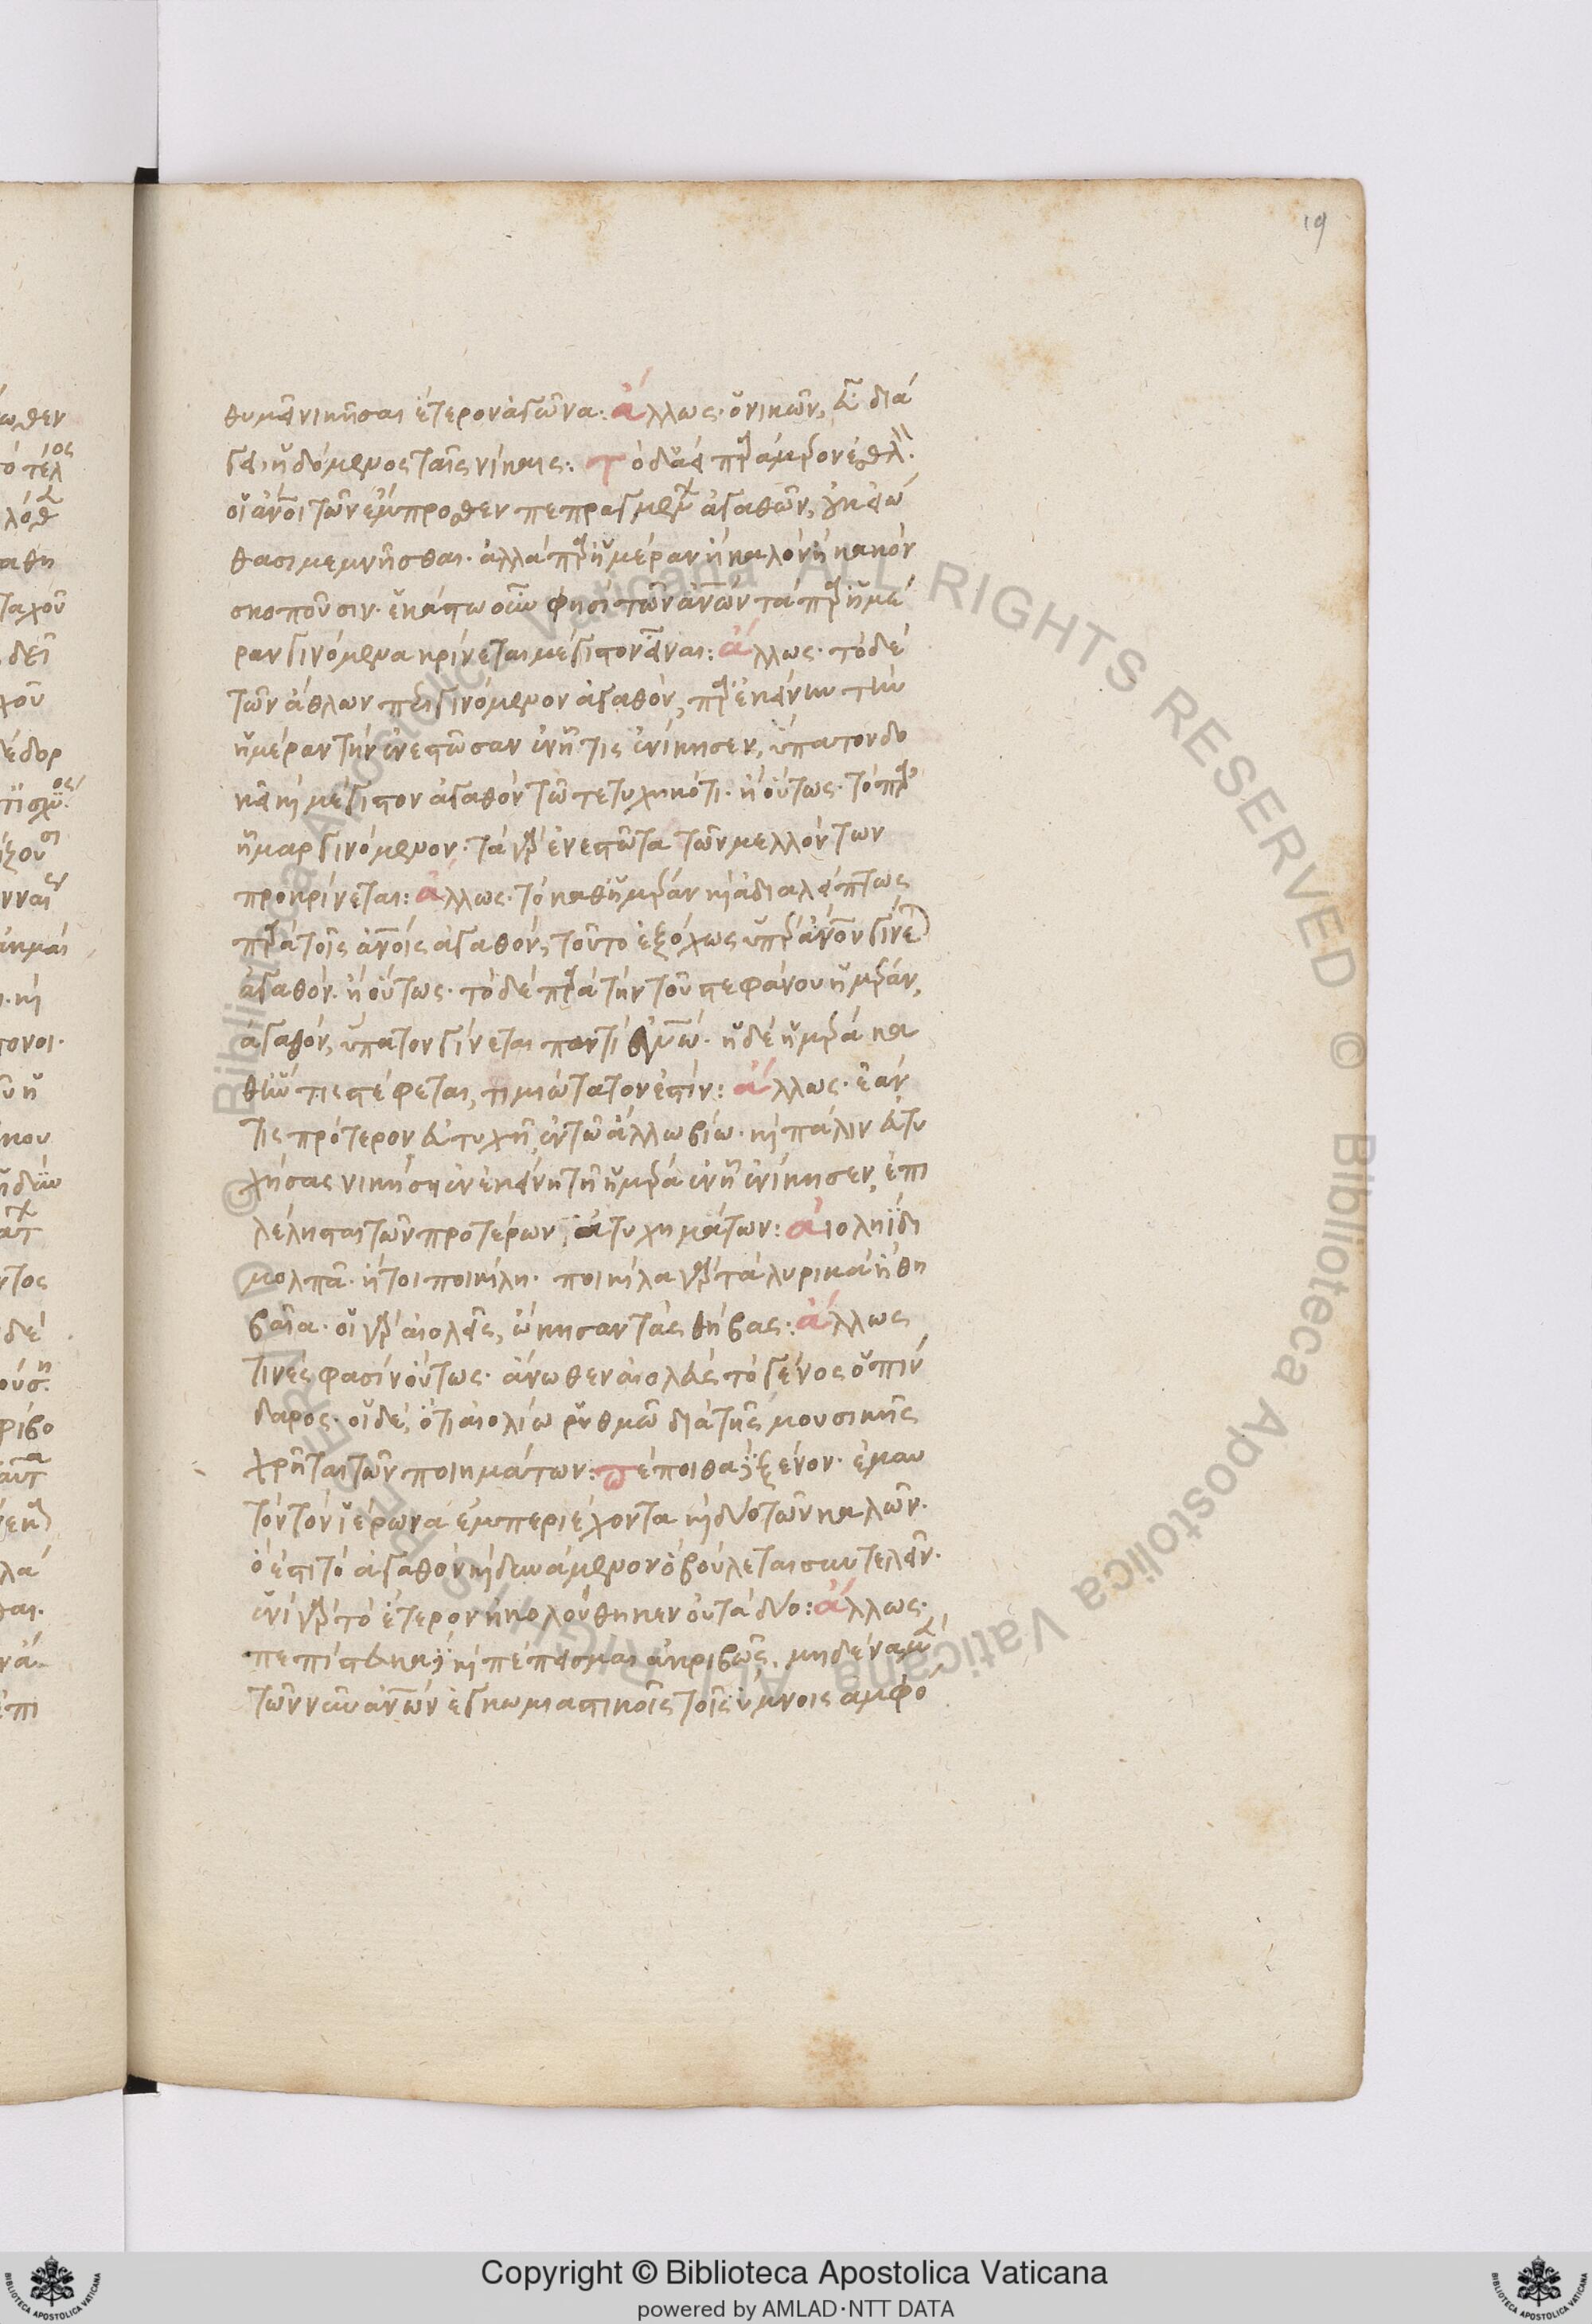 19
θυμεῖ νικῆσαι ἕτερον ἀγῶνα: ἄλλως· ὁ νικῶν, εὖ διά
γει ἡδόμενος ταῖς νίκαις: τὸ δ' ἀεὶ παράμερον ἐσθλ.
οἱ ἄνοι τῶν ἔμπροσθεν πεπραγμένων ἀγαθῶν, οὐκ εἰώ
θασι μεμνῆσθαι· ἀλλὰ παρ' ἡμέραν ἢ καλὸν ἢ κακὸν
σκοποῦσιν· ἑκάστω οὖν φησὶ τῶν ἀνων τὰ παρ' ἡμέ
ραν γινόμενα κρίνεται μέγιστον εἶναι: ἄλλως· τὸ δὲ
τῶν ἄθλων περιγινόμενον ἀγαθὸν, παρ' ἐκείνην τὴν
ἡμέραν τὴν ἐνεστῶσαν ἐν ᾗ τις ἐνίκησεν, ὕπατον δο
κεῖ καὶ μέγιστον ἀγαθὸν τῶ τετυχηκότι· ἢ οὕτως· τὸ παρ'
ἦμαρ γινόμενον· τὰ γὰρ ἐνεστῶτα τῶν μελλόντων
προκρίνεται: ἄλλως· τὸ καθ' ἡμέραν καὶ ἀδιαλείπτως
παρὰ τοῖς ἀνοις ἀγαθὸν, τοῦτο ἐξόχως ὑπὲρ ἄνον γίνεται
ἀγαθόν· ἢ οὕτως· τὸ δὲ παρὰ τὴν τοῦ στεφάνου ἡμέραν,
ἀγαθὸν, ὕπατον γίνεται παντὶ ἀνω· ἡ δὲ ἡμέρα κα
θ' ἥν τις στέφεται, τιμιώτατον ἐστίν: ἄλλως· ἐὰν
τις πρότερον εὐτυχῆ ἐν τῶ ἄλλω βίω· καὶ πάλιν εὐτυ
χήσας νικήση ἐν ἐκείνη τῆ ἡμέρα ἐν ᾗ ἐνίκησεν, ἐπι
λέλησται τῶν προτέρων ἀτυχημάτων: αἰοληΐδι
μολπᾶ· ἤτοι ποικίλη· ποικίλα γὰρ τὰ λυρικὰ ἢ θη
βαῖα· οἱ γὰρ αἰολεῖς, ὤκησαν τὰς θήβας: ἄλλως
τινὲς φασὶν οὕτως· ἄνωθεν αἰολεὺς τὸ γένος ὁ πίν
δαρος· οἱ δὲ, ὅτι αἰολίω ῥυθμῶ διὰ τῆς μουσικῆς
χρῆται τῶν ποιημάτων: πέποιθα δὲ ξένον· ἐμαυ
τὸν τὸν ἱέρωνα ἐμπεριέχοντα καὶ δύο τῶν καλῶν·
ὅ ἐστι τὸ ἀγαθὸν καὶ δυνάμενον ὃ βούλεται συντελεῖν·
ἑνὶ γὰρ τὸ ἕτερον ἠκολούθηκεν οὐ τὰ δύο: ἄλλως·
πεπίστευκα δὲ καὶ πέπεισμαι ἀκριβῶς, μηδένα μὲν
τῶν νῦν ἀνων ἐγκωμιαστικοῖς τοῖς ὕμνοις ἀμφο
Copyright © Biblioteca Apostolica Vaticana
powered by AMLAD·NTT DATA